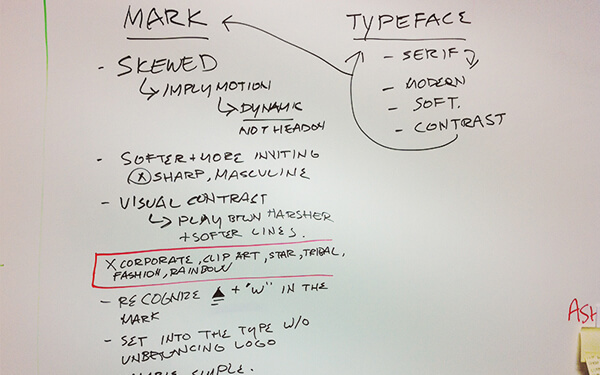 MARK
- SKEWED
↳ IMPLY MOTION
↳ DYNAMIC
NOT HEADON
- SOFTER + MORE INVITING
ⓧ SHARP, MASCULINE
- VISUAL CONTRAST
↳ PLAY BTWN HARSHER
+ SOFTER LINES.
X CORPORATE, CLIP ART, STAR, TRIBAL,
FASHION, RAINBOW
- RECOGNIZE + "W" IN THE
MARK
- SET INTO THE TYPE W/O
UNBALANCING LOGO
SIMPLE.
TYPEFACE
- SERIF
- MODERN
- SOFT.
- CONTRAST
ASH